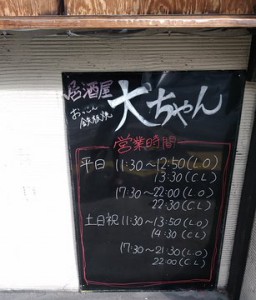 居酒屋
大ちゃん
営業時間
平日 11:30～12:50(LO)
13:30(CL)
17:30～22:00(LO)
22:30(CL)
土日祝 11:30～13:50(LO)
14:30(CL)
17:30～21:30(LO)
22:00(CL)